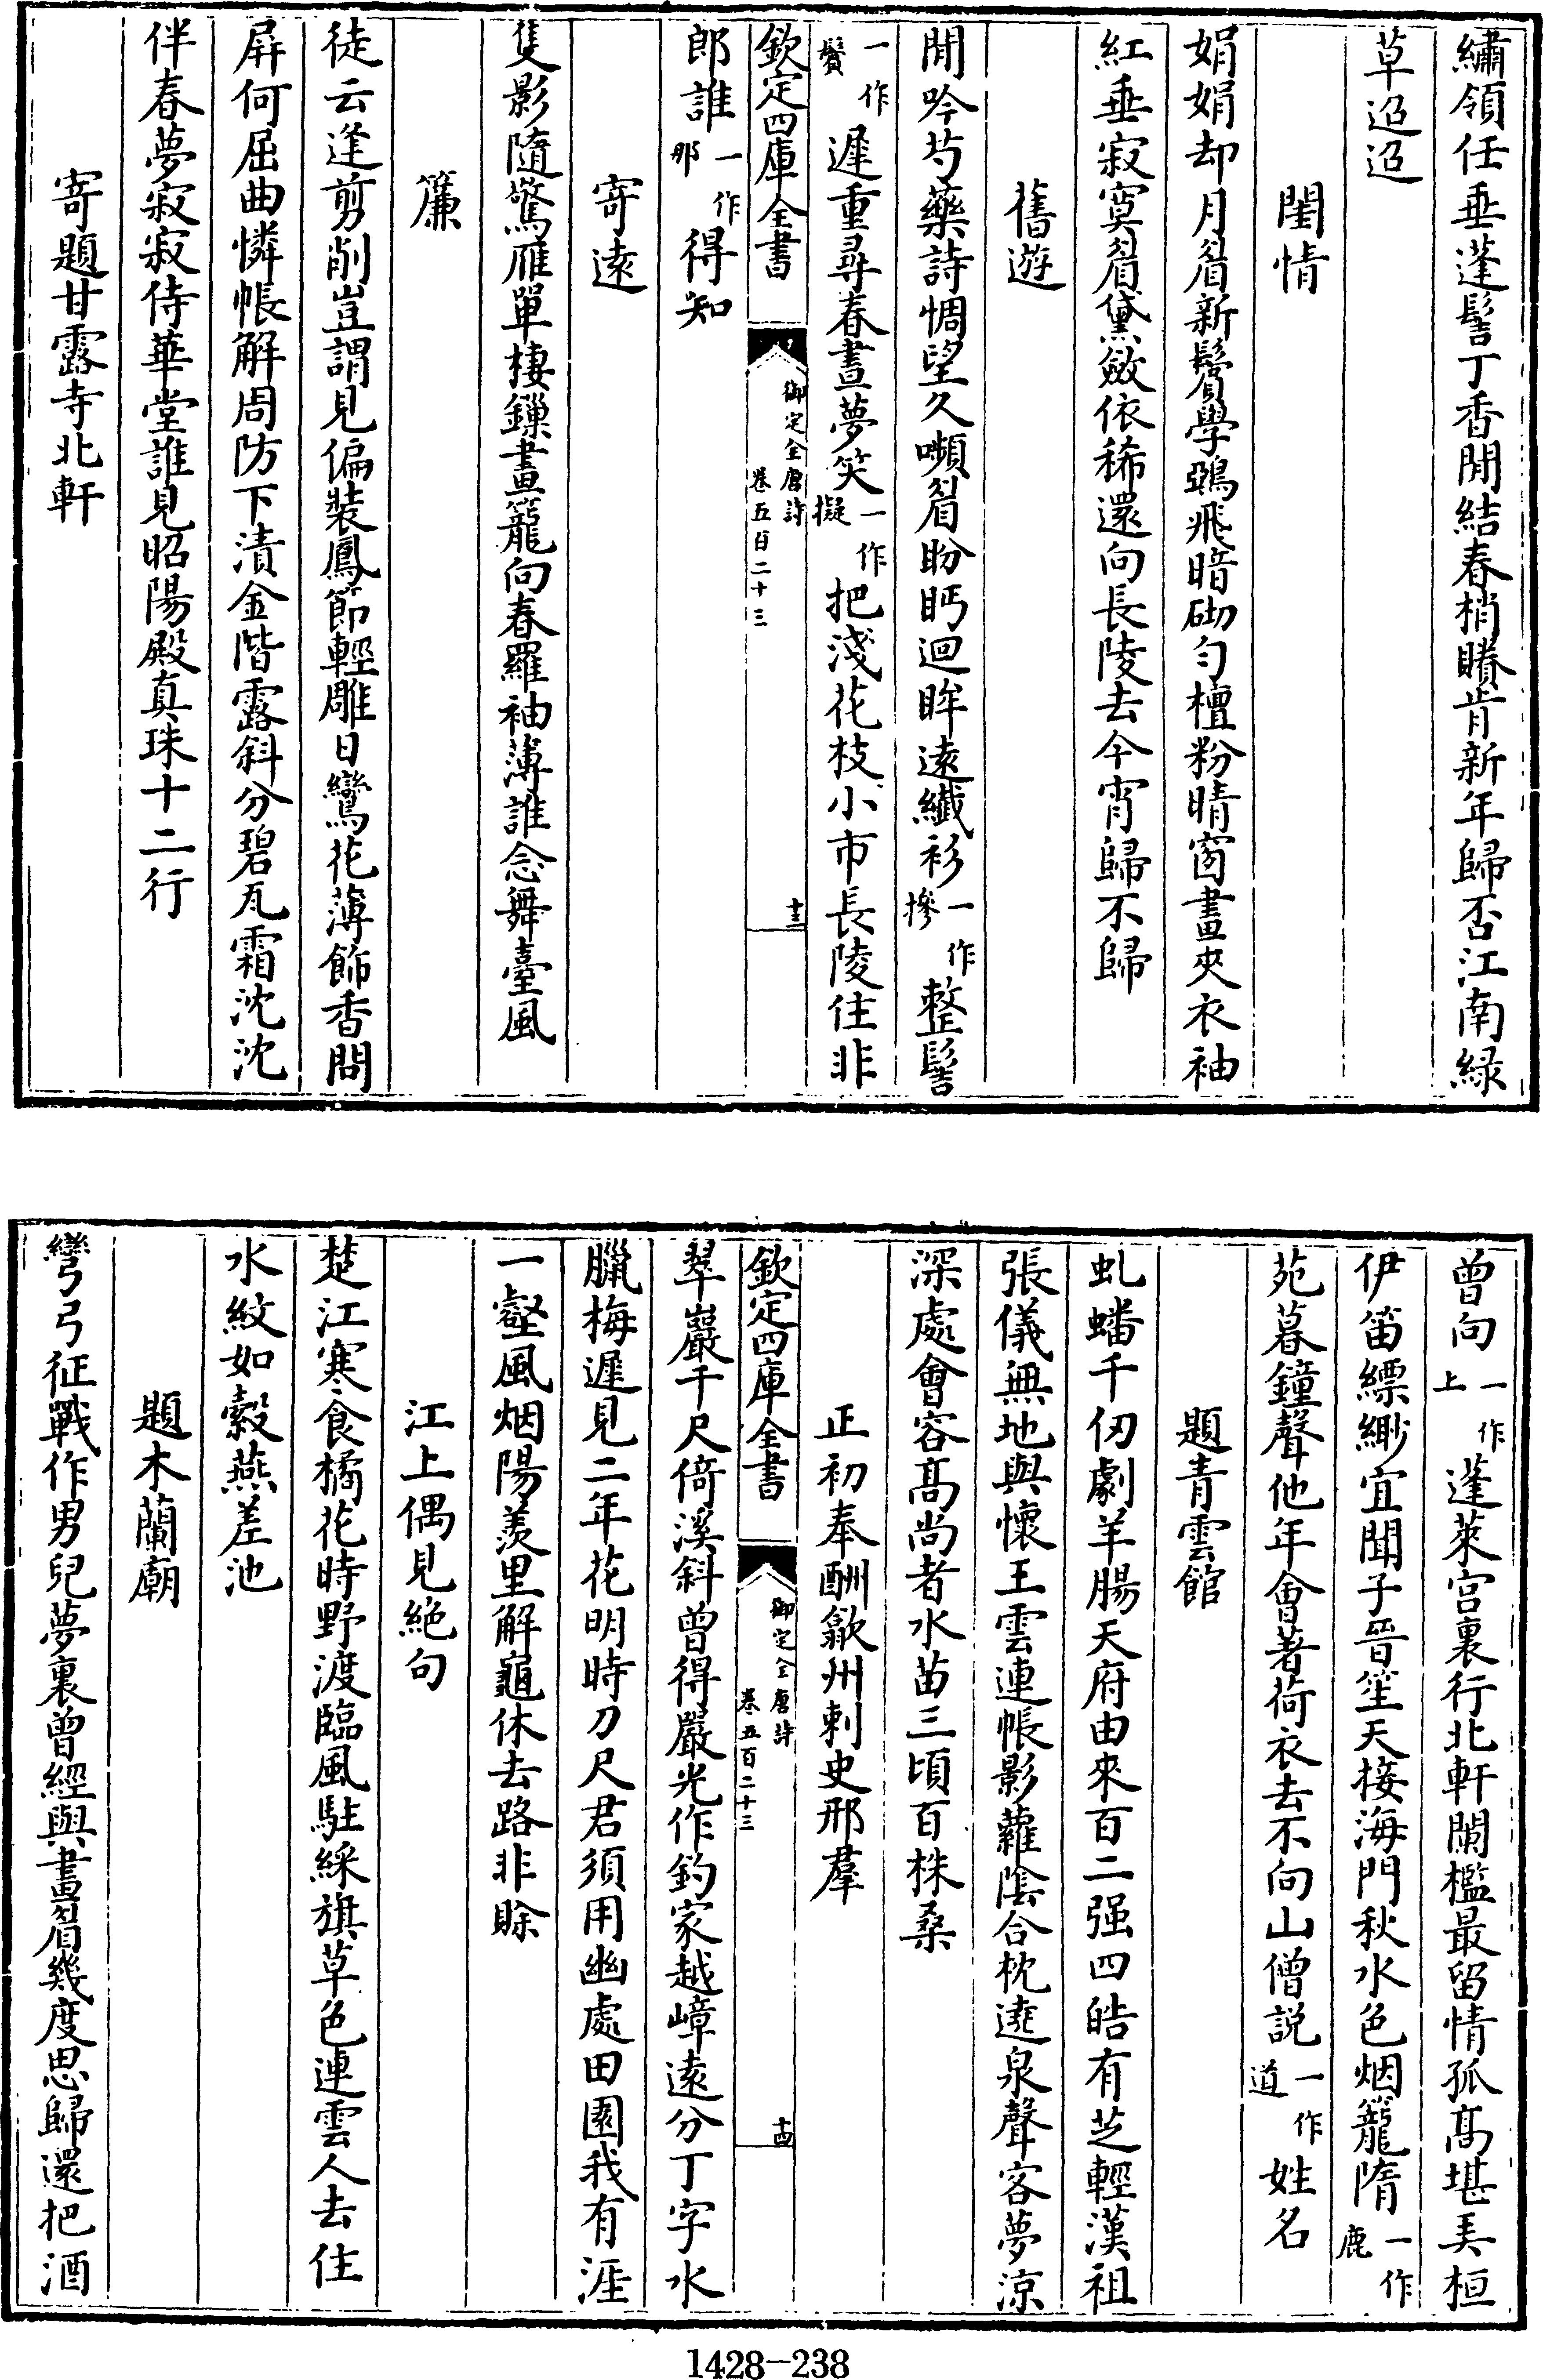 繡領任垂蓬髻丁香閒結春梢賸肯新年歸否江南綠
草迢迢
閨情
娟娟却月眉新鬢學鴉飛暗砌勻檀粉晴窗畫夾衣袖
紅垂寂寞眉黛斂依稀還向長陵去今宵歸不歸
舊遊
閒吟芍藥詩悵望久嚬眉盼眄迴眸遠纖衫一作摻整髻
一作鬢遲重尋春晝夢笑一作擬把淺花枝小市長陵住非
欽定四庫全書 御定全唐詩 卷五百二十三 十三
郎誰一作那得知
寄遠
隻影隨驚雁單棲鏁畫籠向春羅袖薄誰念舞臺風
簾
徒云逢剪削豈謂見偏裝鳳節輕雕日鸞花薄飾香問
屏何屈曲憐帳解周防下漬金階露斜分碧瓦霜沈沈
伴春夢寂寂侍華堂誰見昭陽殿真珠十二行
寄題甘露寺北軒
曾向一作上蓬萊宮裏行北軒闌檻最留情孤高堪弄桓
伊笛縹緲宜聞子晉笙天接海門秋水色烟籠隋一作鹿
苑暮鐘聲他年會著荷衣去不向山僧說一作道姓名
題青雲館
虬蟠千仞劇羊腸天府由來百二强四皓有芝輕漢祖
張儀無地與懷王雲連帳影蘿陰合枕遶泉聲客夢涼
深處會容高尚者水苗三頃百株桑
正初奉酬歙州刺史邢羣
欽定四庫全書 御定全唐詩 卷五百二十三 十四
翠巖千尺倚溪斜曾得嚴光作釣家越嶂遠分丁字水
臘梅遲見二年花明時刀尺君須用幽處田園我有涯
一壑風烟陽羨里解龜休去路非賒
江上偶見絶句
楚江寒食橘花時野渡臨風駐綵旗草色連雲人去住
水紋如縠燕差池
題木蘭廟
彎弓征戰作男兒夢裏曾經與畫眉幾度思歸還把酒
1428—238